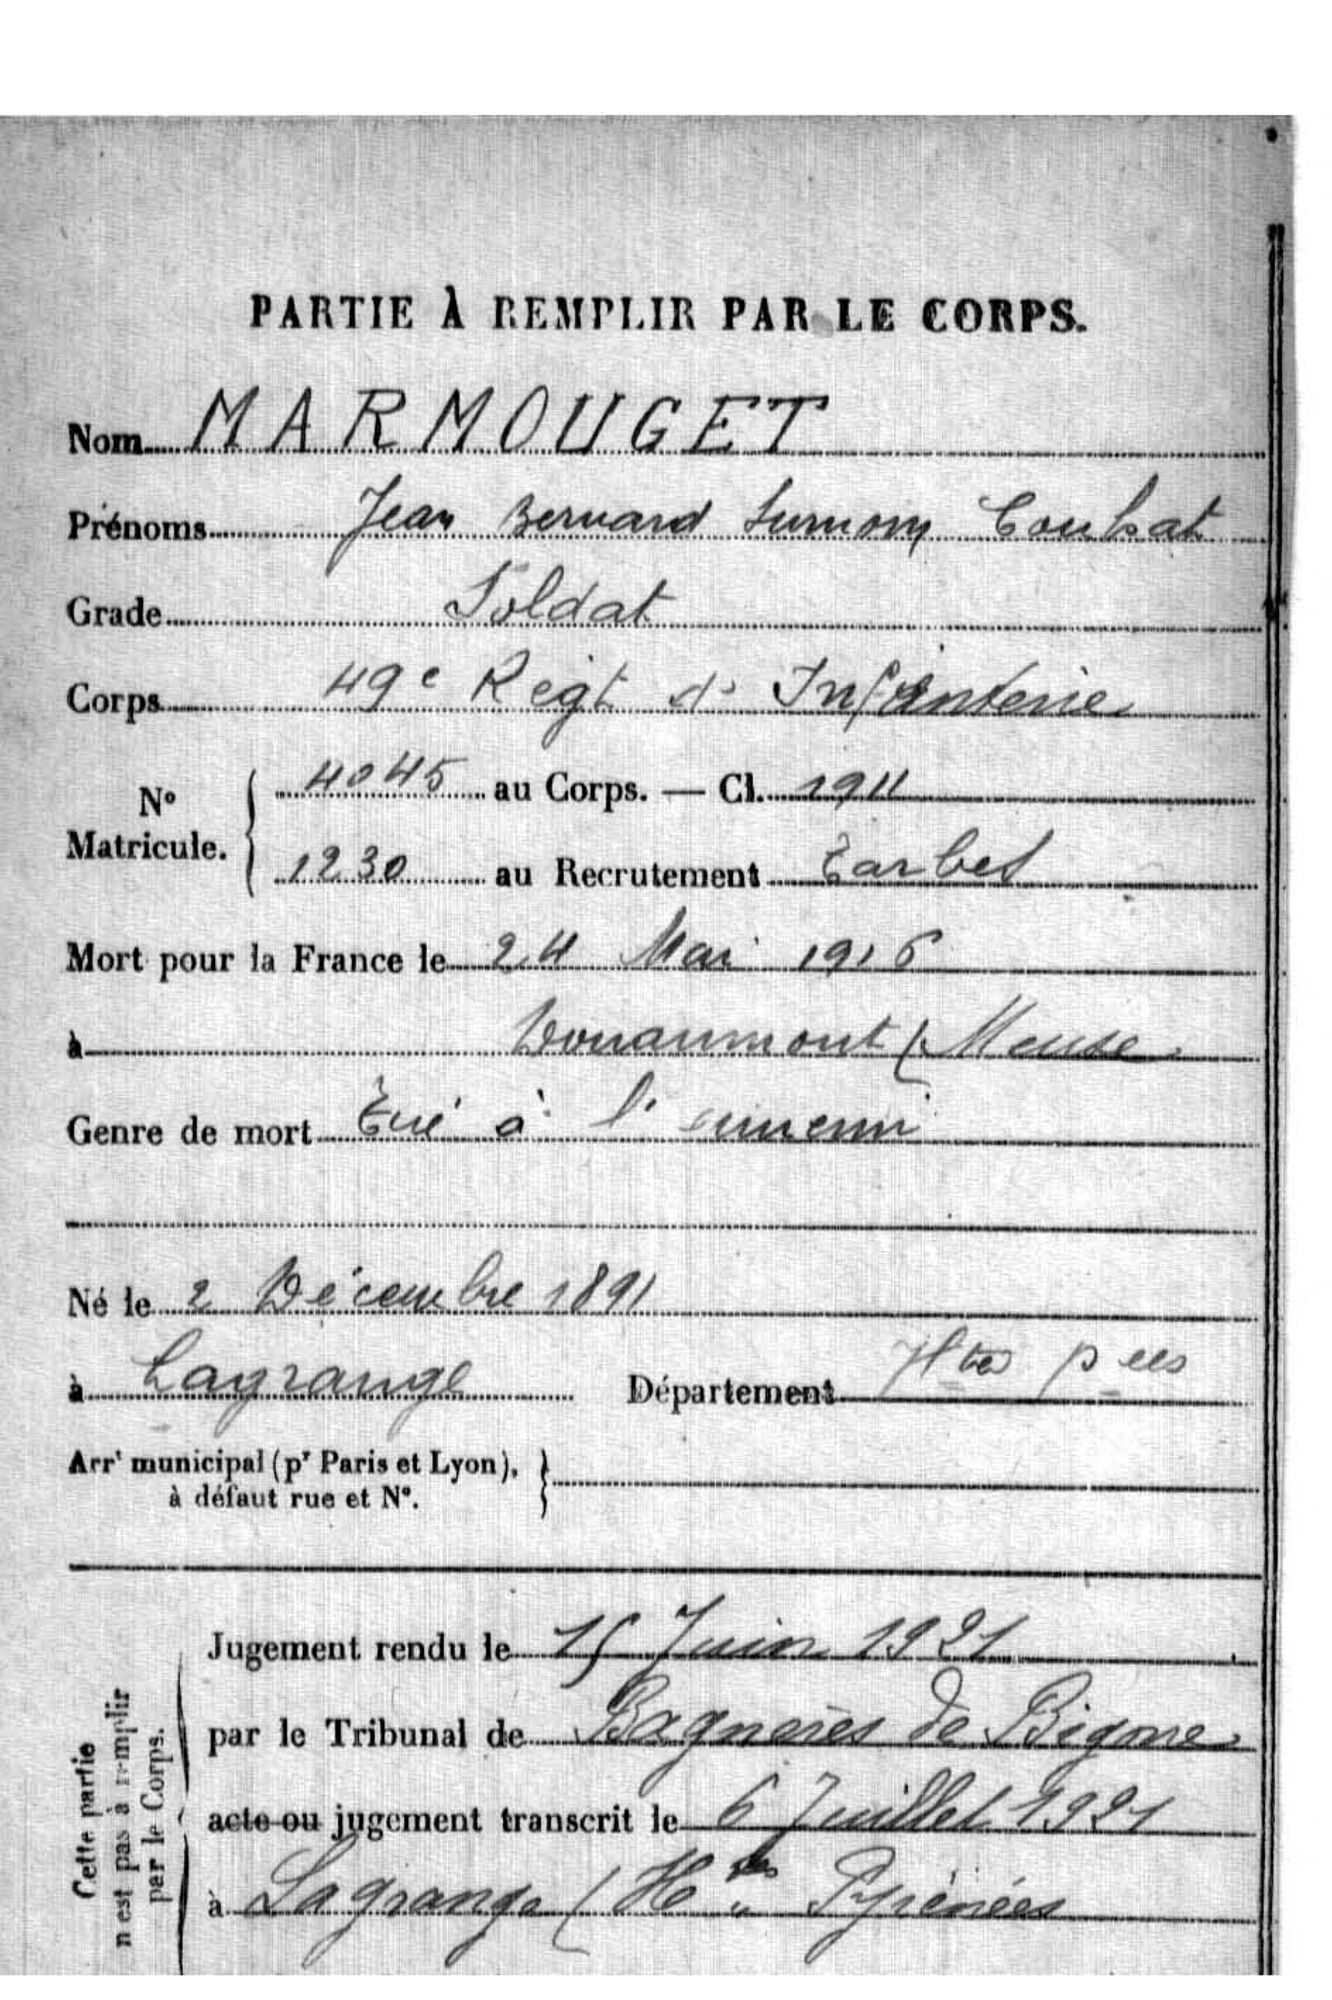 PARTIE À REMPLIR PAR LE CORPS.
Nom MARMOUGET
Prénoms Jean Bernard Surnom Coubat
Grade Soldat
Corps 49e Régt d' Infanterie
No Matricule. { 4045 au Corps. — Cl. 1911
1230 au Recrutement Tarbes
Mort pour la France le 24 Mai 1916
à Douaumont (Meuse
Genre de mort Tué à l'ennemi
Né le 2 Décembre 1891
à Lagrange Département Htes Pees
Arrt municipal (pr Paris et Lyon), }
à défaut rue et No.
Cette partie
n'est pas à remplir
par le Corps.
Jugement rendu le 15 Juin 1921
par le Tribunal de Bagnères de Bigorre
acte ou jugement transcrit le 6 Juillet 1921
à Lagrange (Htes Pyrénées